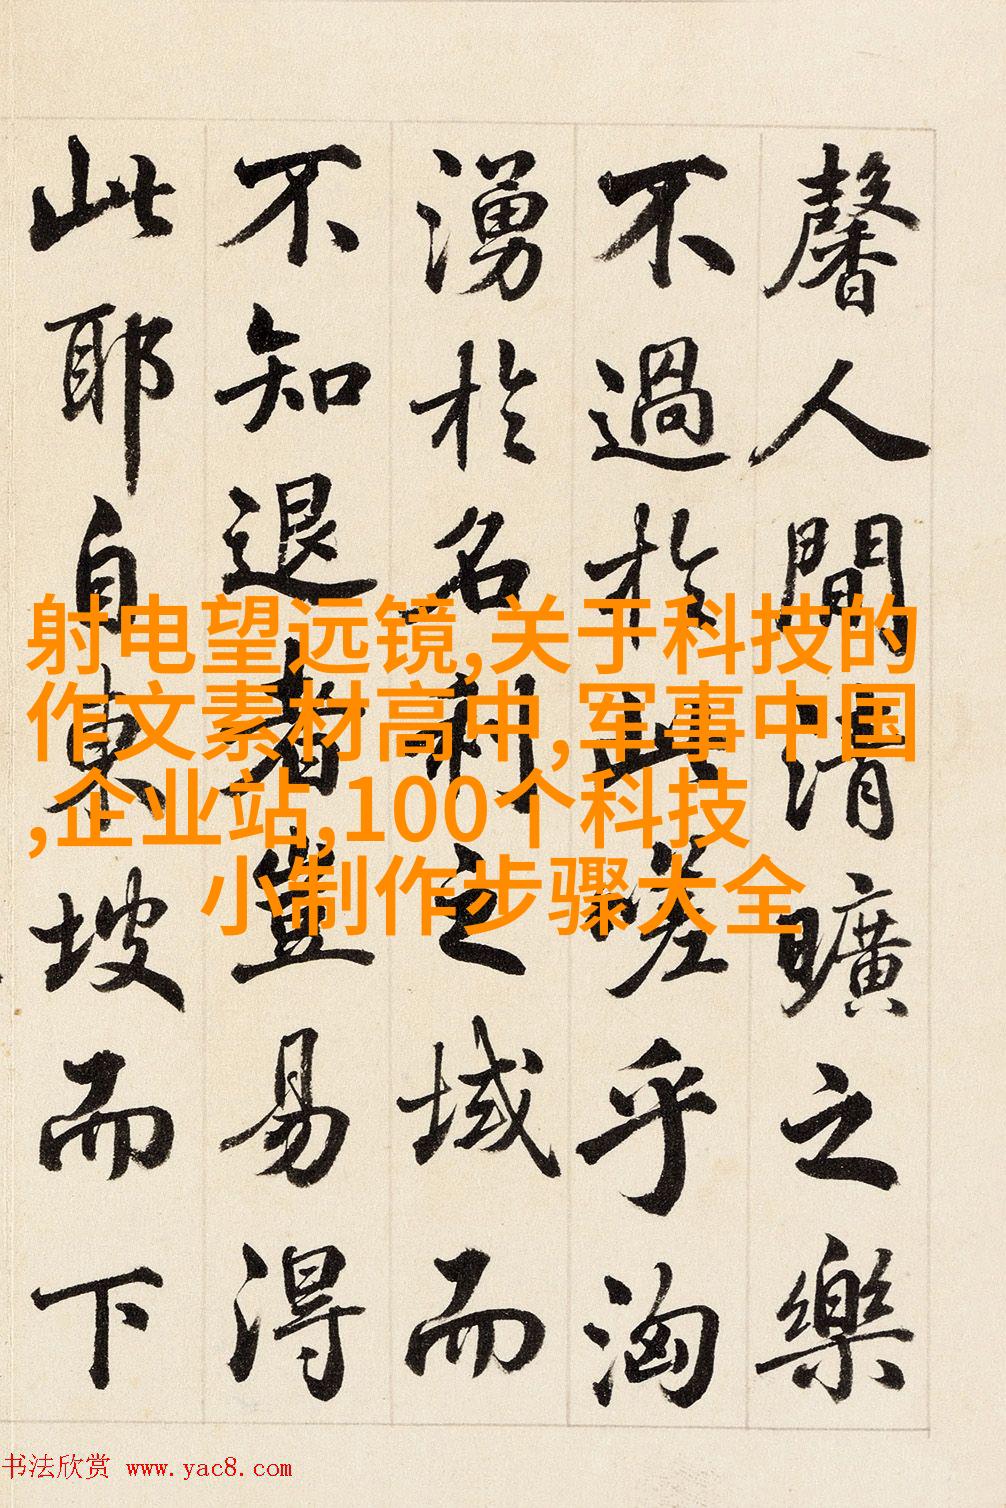 馨人間清曠之樂
不過於此嗟乎洶
湧於名利之域而
不知退者豈易得
此耶自東坡而下
射电望远镜,关于科技的
作文素材高中,军事中国
,企业站,100个科技
小制作步骤大全
书法欣赏 www.yac8.com